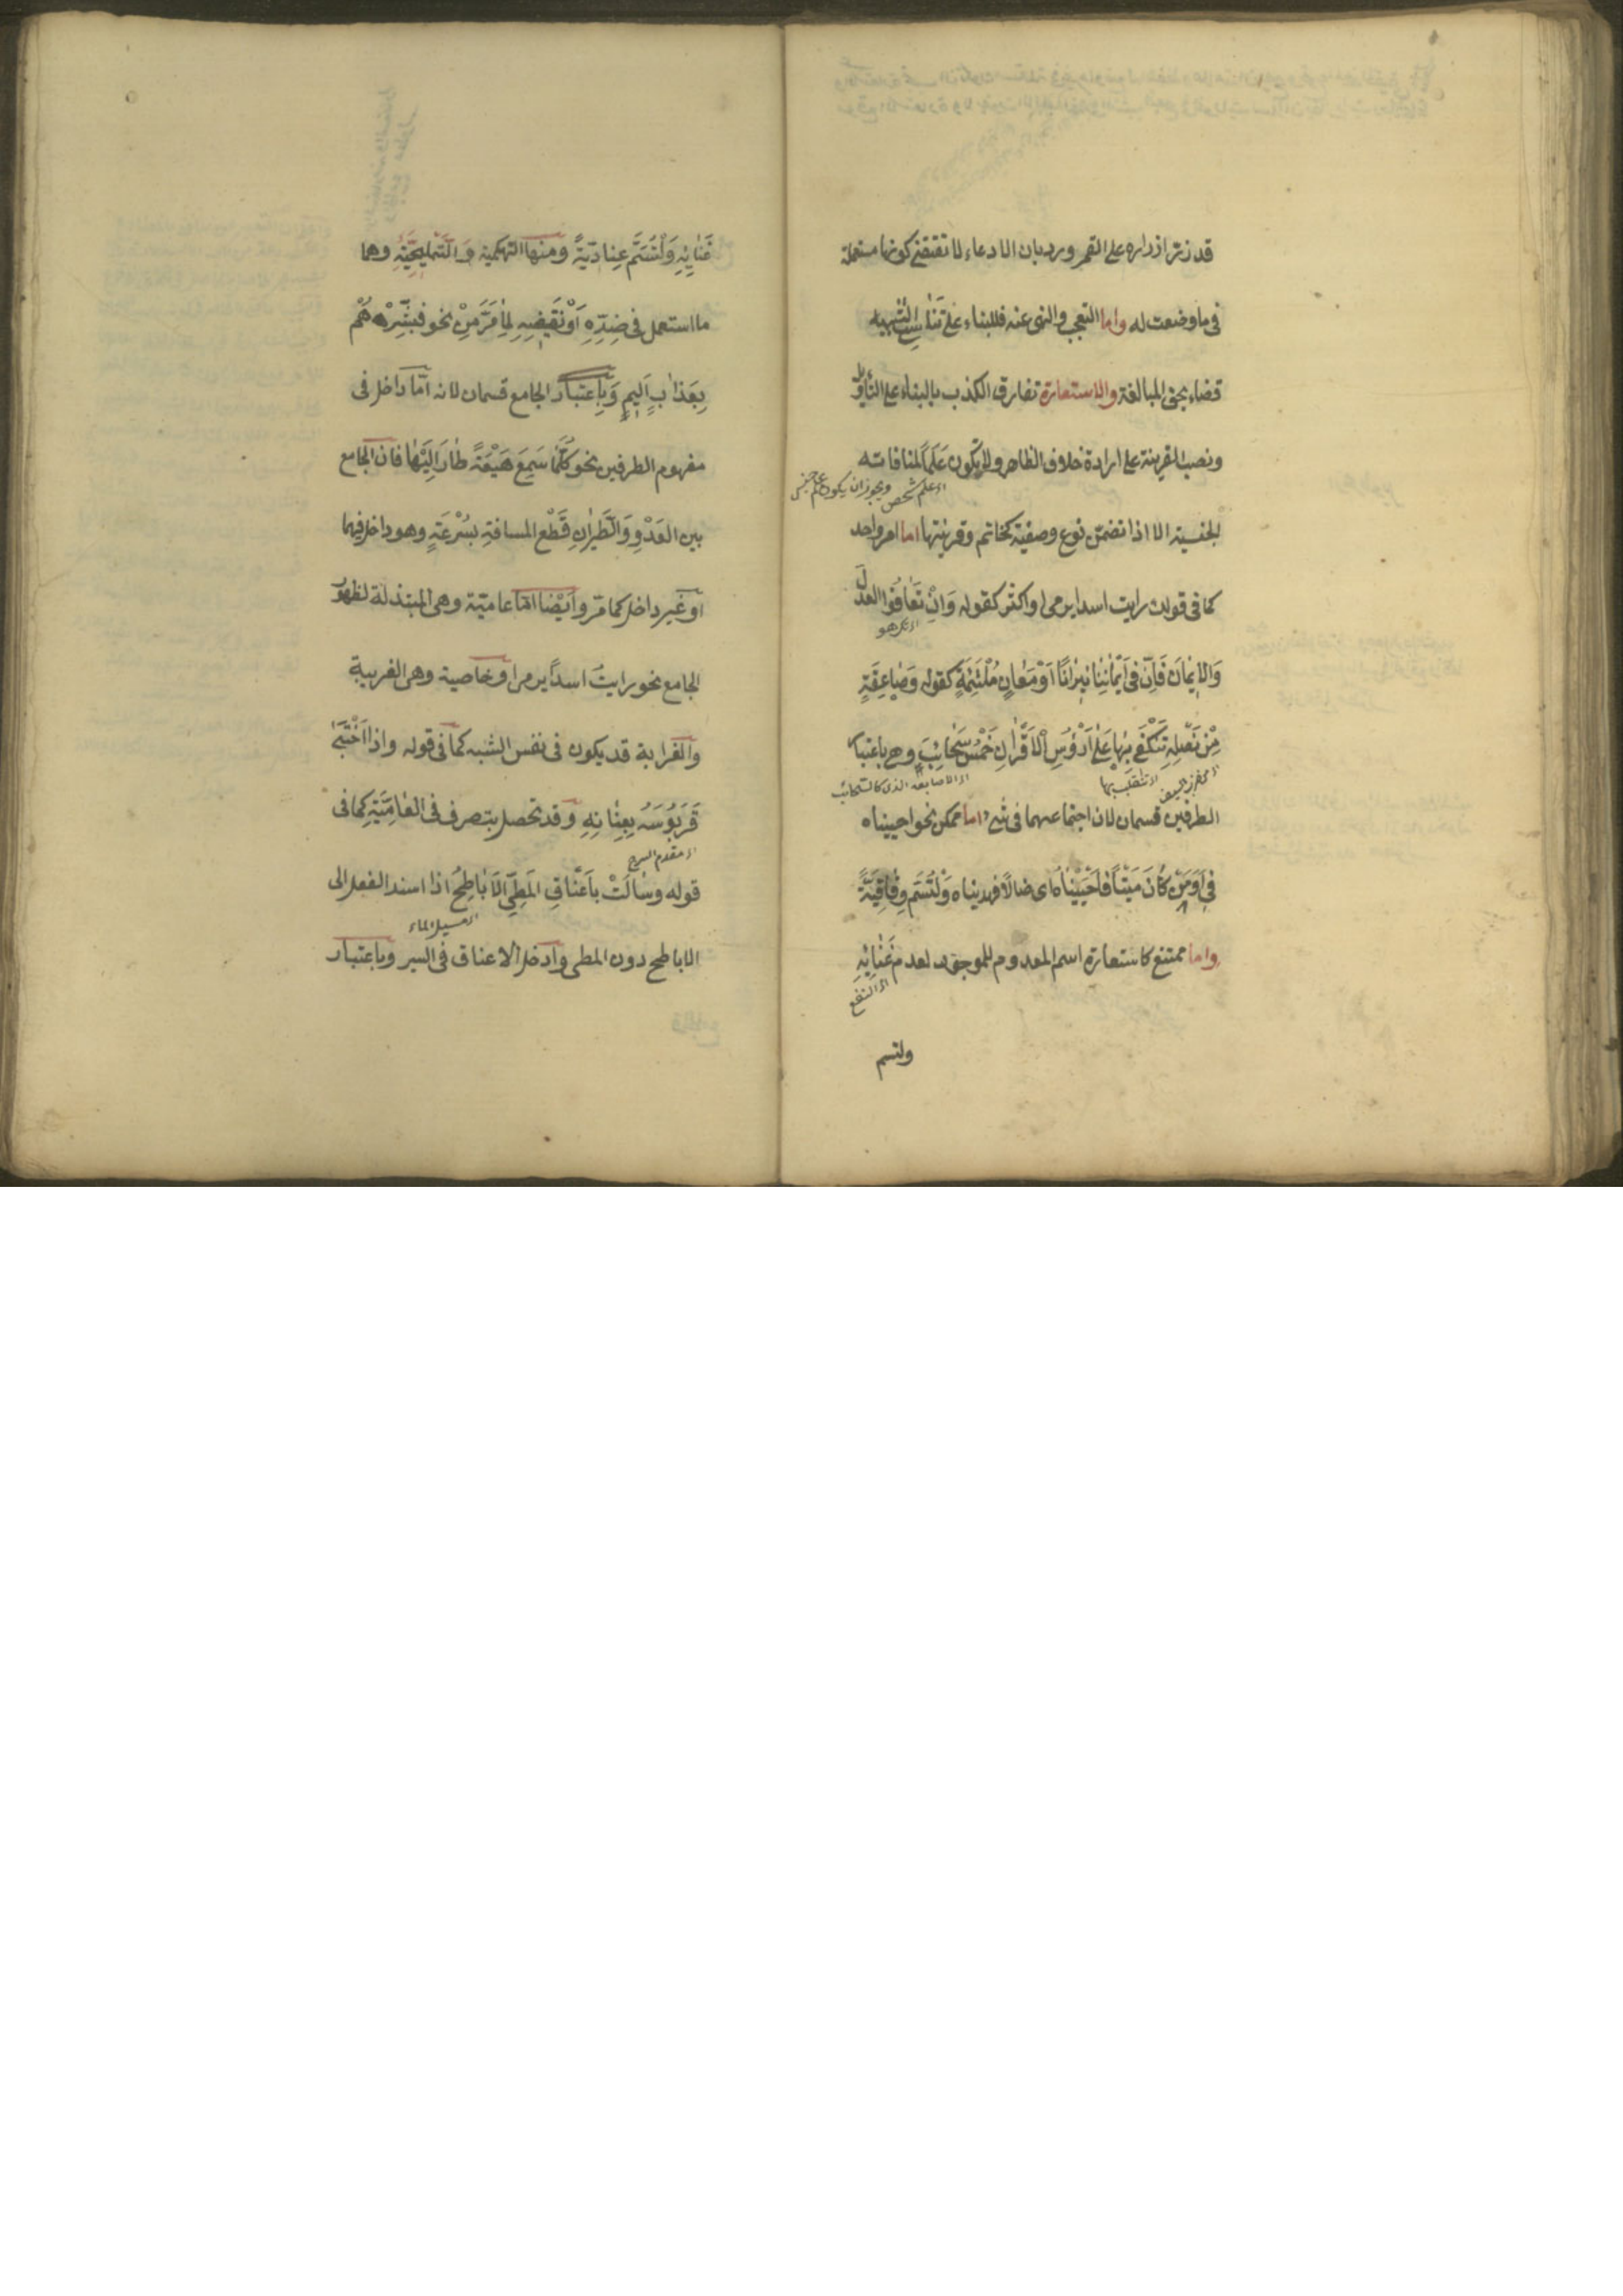 قد زر ازراره على القمر ورد بان الادعاء لا تقتضى كونها مستعملة
فى ما وضعت له واما التعجب والنهى عنه فللبناء على تناسى التشبيه
قضاء بحق المبالغة والاستعارة تفارق الكذب بالبناء على التأويل
ونصب القرينة على ارادة خلاف الظاهر ولا يكون علما لمنافاته
اى علم شخص ويجوز ان يكون علم جنس
الجنسية الا اذا تضمن نوع وصفية كحاتم وقرينتها اما امر واحد
كما فى قولك رايت اسدا يرمى او اكثر كقوله وَاِنْ تَعَافُوا العَدْلَ
اى تكرهو
وَالاِيمَانَ فَاِنَّ فى اَيْمَانِنَا نِيرَانًا اَوْ مَعَانٍ مُلْتَئِمَةٍ كقوله وَصَاعِقَةٍ
مِنْ نَصْلِهِ تَنْكَفِى بِهَا عَلَى اَرْؤُسِ الاَقْرَانِ خَمْسُ سَحَائِبَ وهى باعتبار
اى تنقلب بها
الطرفين قسمان لان اجتماعهما فى شئ اما ممكن نحو احييناه
فى اَوَمَنْ كَانَ مَيْتًا فَاَحْيَيْنَاهُ اى ضالا فهديناه وَلْتُسَمَّ وِفَاقِيَّةً
واما ممتنع كاستعارة اسم المعدوم للموجود لعدم غَنَائِهِ
اى النفع
ولتسم
غَنَائِهِ وَلْتُسَمَّ عِنَادِيَّةً ومنها التهكمية وَالتَّمْلِيحِيَّةِ وهما
ما استعمل فى ضِدِّهِ اَوْ نَقِيضِهِ لِمَا مَرَّ مِنْ نحو فَبَشِّرْهُمْ
بِعَذَابٍ اَلِيمٍ وَبِاعْتِبَارِ الجامع قسمان لانه اما داخل فى
مفهوم الطرفين نحو كُلَّمَا سَمِعَ هَيْعَةً طَارَ اِلَيْهَا فان الجامع
بين العَدْوِ وَالطَّيَرَانِ قَطْع المسافة بِسُرْعَةٍ وهو داخل فيهما
او غَير داخل كما مر واَيْضا اما عامية وهى المبتذلة لظهور
الجامع نحو رايت اسدًا يرمى او خاصية وهى الغريبة
والغرابة قد يكون فى نفس الشبه كما فى قوله واذا احْتَبَى
قَرَبُوسَهُ بِعِنَانِهِ وقد تحصل بتصرف فى العَامِيَّةِ كما فى
اى مقدم السرج
قوله وسَالَتْ بِاَعْنَاقِ المَطِىِّ الاَبَاطِحُ اذا اسند الفعل الى
اى مسيل الماء
الاباطح دون المطى وادخل الاعناق فى السير وباعتبار